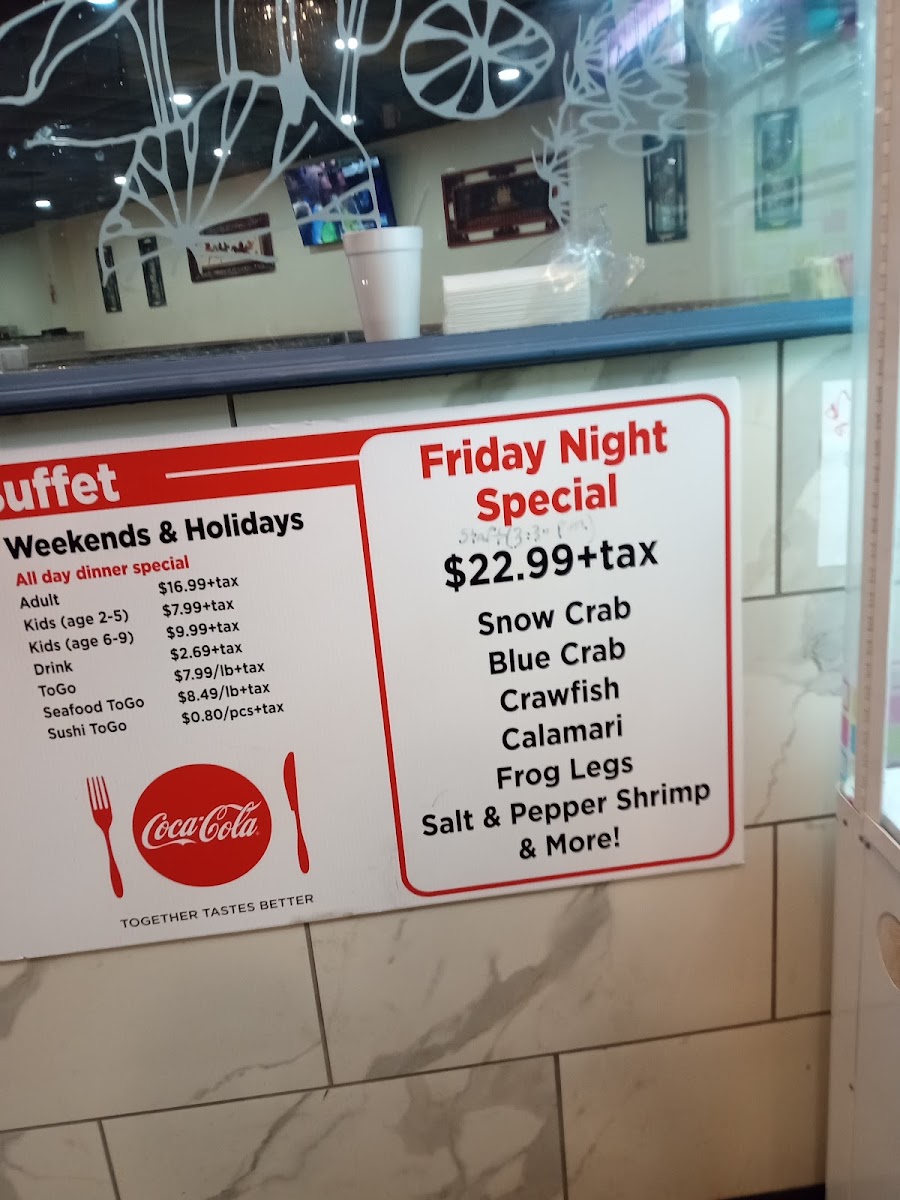 Buffet
Weekends & Holidays
All day dinner special
Adult $16.99+tax
Kids (age 2-5) $7.99+tax
Kids (age 6-9) $9.99+tax
Drink $2.69+tax
ToGo $7.99/lb+tax
Seafood ToGo $8.49/lb+tax
Sushi ToGo $0.80/pcs+tax
Coca-Cola
TOGETHER TASTES BETTER
Friday Night
Special
Start (3:30 pm)
$22.99+tax
Snow Crab
Blue Crab
Crawfish
Calamari
Frog Legs
Salt & Pepper Shrimp
& More!